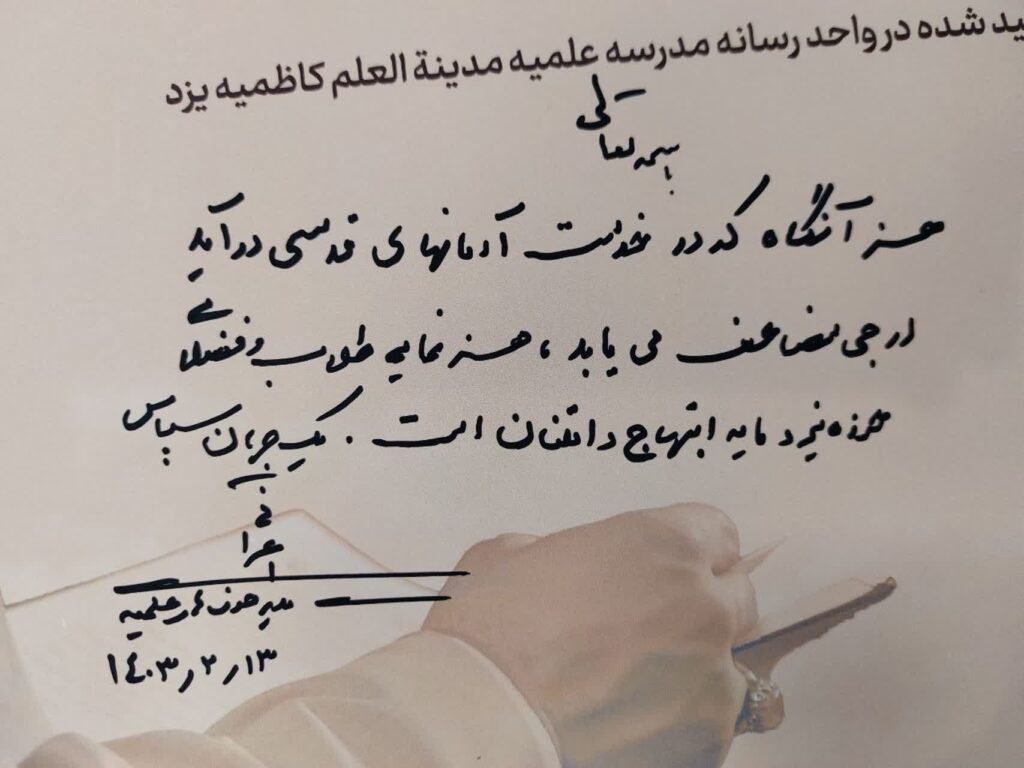 ید شده در واحد رسانه مدرسه علمیه مدینة العلم کاظمیه یزد
باسمه تعالی
هنر آنگاه که در خدمت آرمانهای قدسی درآید
ارجی مضاعف می یابد، هنرنمایی طلاب و فضلای
هنرمند مایه ابتهاج و امتنان است. یک جهان سپاس
اعرافی
مدیر حوزه‌های علمیه
۱۴۰۳٫۲٫۱۳